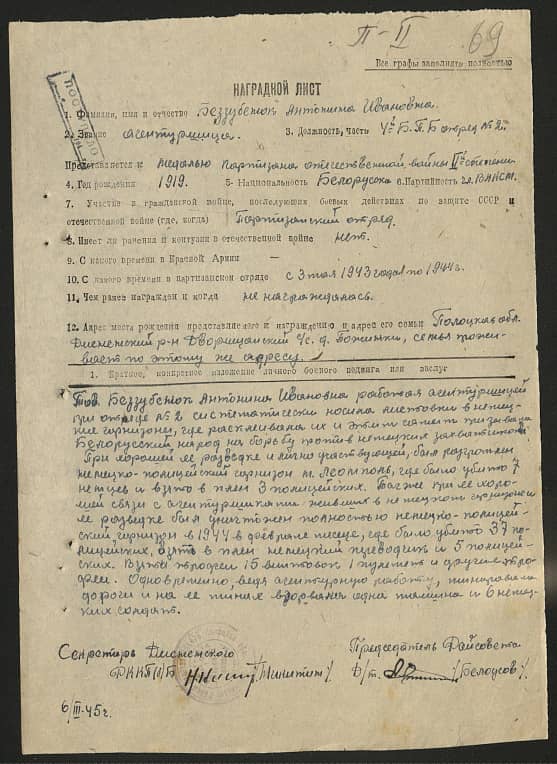 П-II 69
Все графы заполнять полностью
НАГРАДНОЙ ЛИСТ
1. Фамилия, имя и отчество Беззубенок Антонина Ивановна.
2. Звание агентурщица. 3. Должность, часть 4я Б.П.Б отряд №2.
Представляется к медалью партизана отечественной войны II степени
4. Год рождения 1919. 5. Национальность Белоруска 6. Партийность чл. ВЛКСМ.
7. Участие в гражданской войне, последующих боевых действиях по защите СССР и
отечественной войне (где, когда) Партизанский отряд.
8. Имеет ли ранения и контузии в отечественной войне нет.
9. С какого времени в Красной Армии —
10. С какого времени в партизанском отряде с 3 мая 1943 года по 1944 г.
11. Чем ранее награжден и когда не награждалась.
12. Адрес места рождения представляемого к награждению и адрес его семьи Полоцкая обл.
Дисненский р-н Дворищанский с/с. д. Боженки, семья прожи-
вает по этому же адресу.
1. Краткое, конкретное изложение личного боевого подвига или заслуг
Тов. Беззубенок Антонина Ивановна работая агентурщицей
при отряде №2 систематически носила листовки в немец-
кие гарнизоны, где расклеивала их и этим самым призывала
Белорусский народ на борьбу против немецких захватчиков.
При хорошей ее разведке и лично участвующей, был разгромлен
немецко-полицейский гарнизон м. Леонполь, где было убито 7
немцев и взято в плен 3 полицейских. Также при ее хоро-
шей связи с агентурщиками живших в немецком гарнизоне и
ее разведке был уничтожен полностью немецко-полицей-
ский гарнизон в 1944 в феврале месяце, где было убито 37 по-
лицейских, взято в плен немецкий переводчик и 5 полицей-
ских. Взяты трофеи 15 винтовок 1 пулемет и другие тро-
феи. Одновременно, ведя агентурную работу, минировала
дороги и на ее минах взорвана одна машина и 6 немец-
ких солдат.
Секретарь Дисненского Председатель Райсовета
РККП(б)Б /Никитин/. /Белоусов/.
6/III-45г.